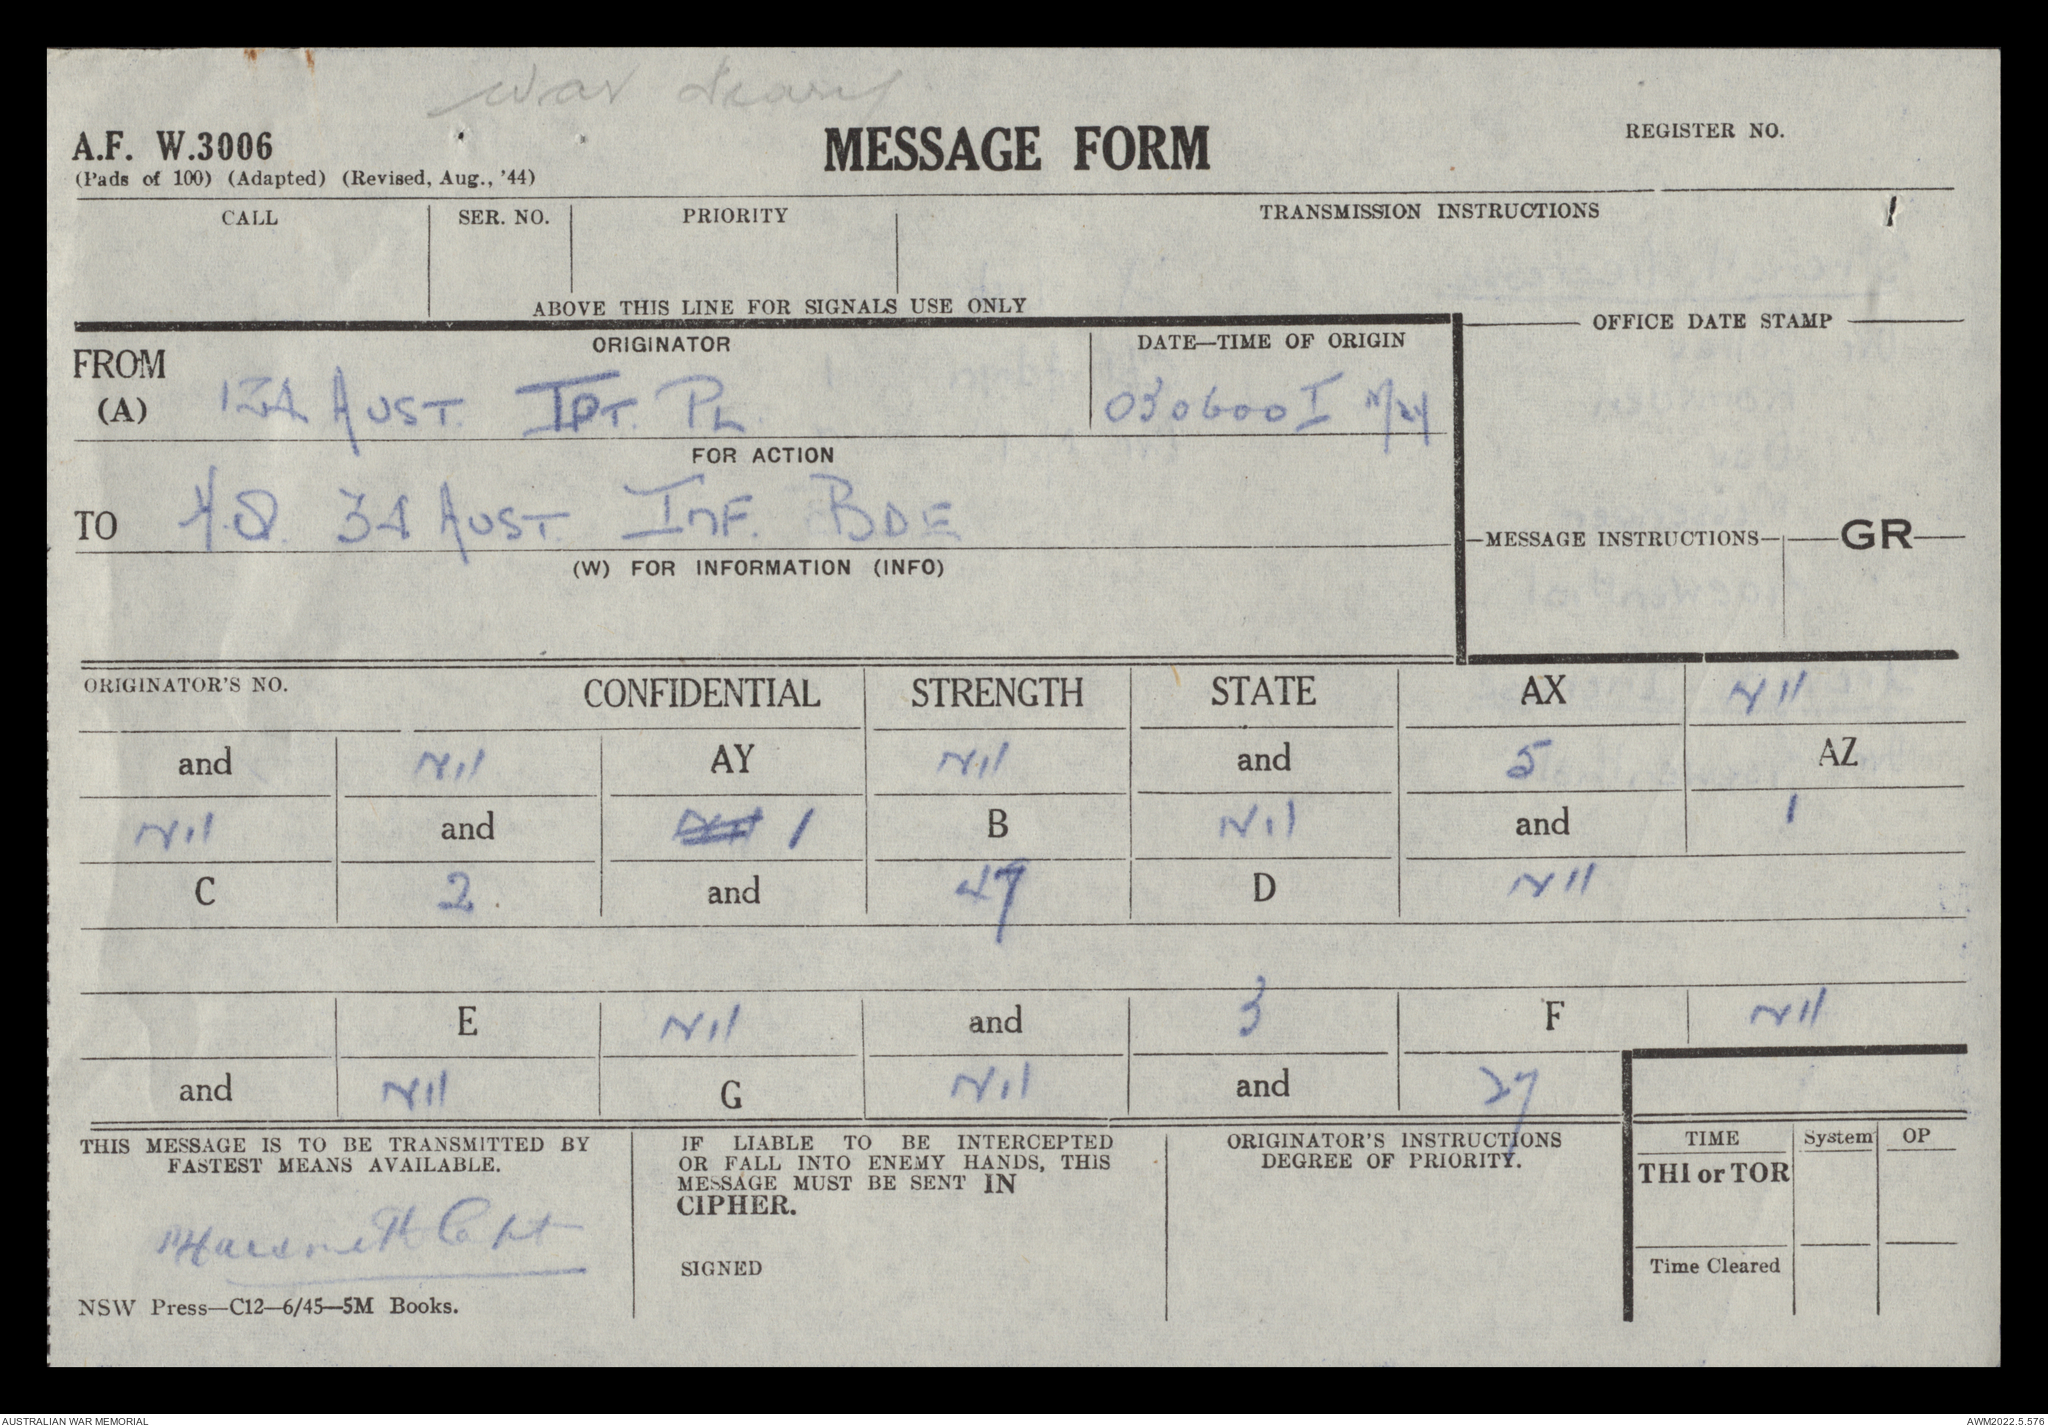 War Diary
A.F. W.3006
(Pads of 100) (Adapted) (Revised, Aug., '44)
MESSAGE FORM
REGISTER NO.
CALL SER. NO. PRIORITY TRANSMISSION INSTRUCTIONS
ABOVE THIS LINE FOR SIGNALS USE ONLY
ORIGINATOR DATE—TIME OF ORIGIN OFFICE DATE STAMP
FROM
(A) 134 AUST. IPT. PL. 030600I
FOR ACTION
TO H.Q. 34 AUST. INF. BDE
MESSAGE INSTRUCTIONS GR
(W) FOR INFORMATION (INFO)
ORIGINATOR'S NO. CONFIDENTIAL STRENGTH STATE AX Nil
and Nil AY Nil and 5 AZ
Nil and Nil 1 B Nil and 1
C 2 and 47 D Nil
E Nil and 3 F Nil
and Nil G Nil and 27
THIS MESSAGE IS TO BE TRANSMITTED BY
FASTEST MEANS AVAILABLE.
Capt
IF LIABLE TO BE INTERCEPTED
OR FALL INTO ENEMY HANDS, THIS
MESSAGE MUST BE SENT IN
CIPHER.
SIGNED
ORIGINATOR'S INSTRUCTIONS
DEGREE OF PRIORITY.
TIME System OP
THI or TOR
Time Cleared
NSW Press—C12—6/45—5M Books.
AUSTRALIAN WAR MEMORIAL AWM2022.5.576